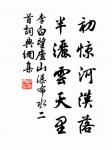 初惊河汉落
半洒云天里
李白望庐山瀑布水二
首詞興網集